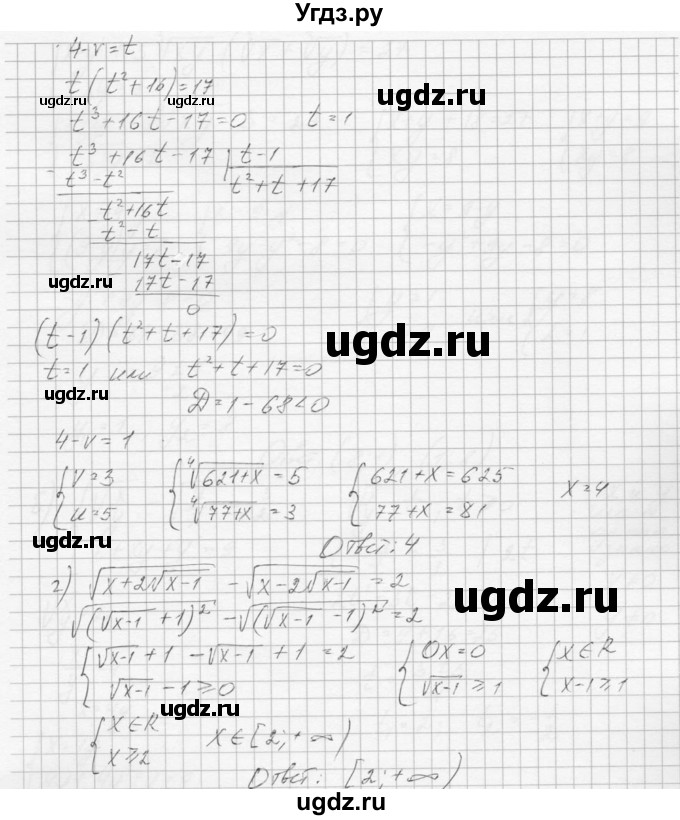 Угдз.ру
4-v=t
t(t²+16)=17
ugdz.ru ugdz.ru
ugdz.ru
t³+16t-17=0 t=1
- t³+16t-17 | t-1
t³-t² t²+t+17
- t²+16t
t²-t
17t-17
ugdz.ru
17t-17
0
(t-1)(t²+t+17)=0
ugdz.ru
t=1 или t²+t+17=0
ugdz.ru
Д=1-68<0
4-v=1
{ v=3 { ⁴√(621+x) = 5 { 621+x=625 x=4
u=5 ⁴√(77+x) = 3 77+x=81
ugdz.ru
Ответ: 4
г) √(x+2√(x-1)) - √(x-2√(x-1)) = 2
ugdz.ru
√((√(x-1)+1)²) - √((√(x-1)-1)²) = 2
{ √(x-1)+1-√(x-1)+1=2 { 0x=0 { x∈R
√(x-1)-1≥0 √(x-1)≥1 x-1≥1
ugdz.ru
{ x∈R x∈[2;+∞)
x≥2
ugdz.ru
Ответ: [2;+∞)
ugdz.ru